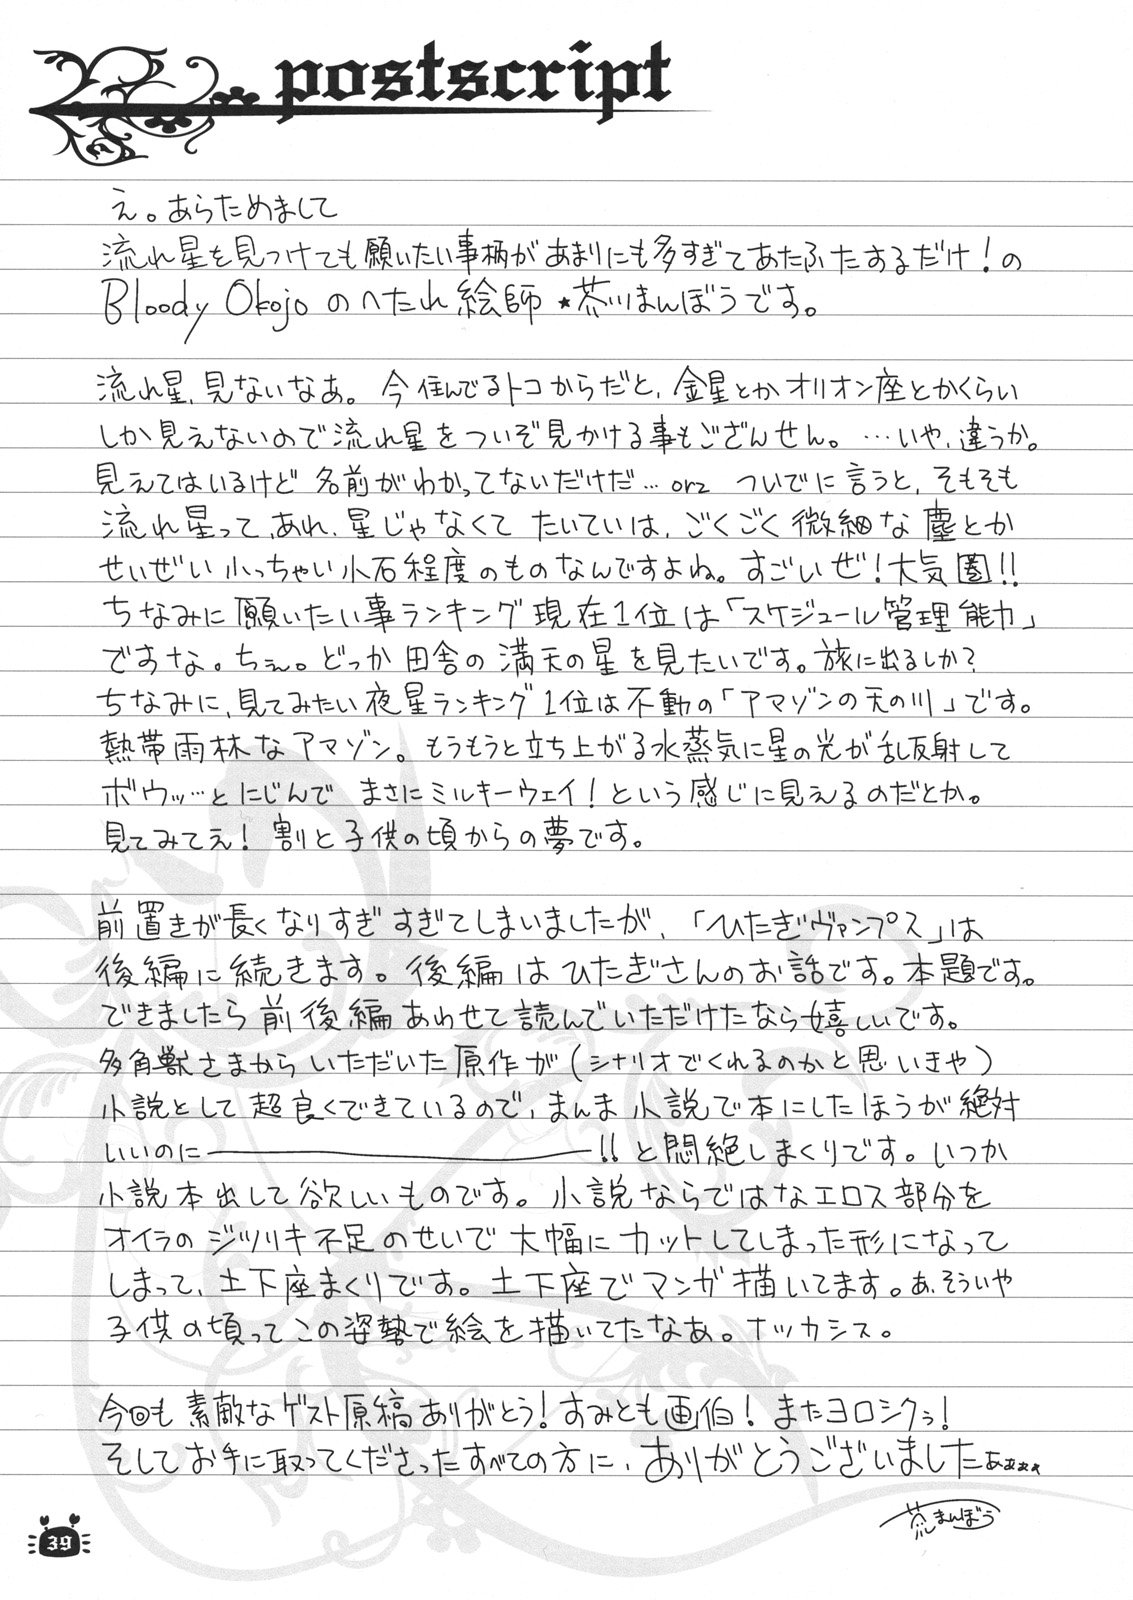 postscript
え。あらためまして
流れ星を見つけても願いたい事柄があまりにも多すぎてあたふたするだけ!の
Bloody Okojo のへたれ絵師★茶川まんぼうです。
流れ星、見ないなあ。今住んでるトコからだと、金星とかオリオン座とかくらい
しか見えないので流れ星をついぞ見かける事もござんせん。…いや、違うか。
見えてはいるけど名前がわかってないだけだ…orz ついでに言うと、そもそも
流れ星って、あれ、星じゃなくてたいていは、ごくごく微細な塵とか
せいぜい小っちゃい小石程度のものなんですよね。すごいぜ!大気圏!!
ちなみに願いたい事ランキング現在1位は「スケジュール管理能力」
ですな。ちぇ。どっか田舎の満天の星を見たいです。旅に出るしか?
ちなみに、見てみたい夜星ランキング1位は不動の「アマゾンの天の川」です。
熱帯雨林なアマゾン。もうもうと立ち上がる水蒸気に星の光が乱反射して
ボウッ…とにじんでまさにミルキーウェイ!という感じに見えるのだとか。
見てみてえ!割と子供の頃からの夢です。
前置きが長くなりすぎすぎてしまいましたが、「ひたぎヴァンプス」は
後編に続きます。後編はひたぎさんのお話です。本題です。
できましたら前後編あわせて読んでいただけたなら嬉しいです。
多角獣さまからいただいた原作が(シナリオでくれるのかと思いきや)
小説として超良くできているので、まんま小説で本にしたほうが絶対
いいのに――――――!!と悶絶しまくりです。いつか
小説本出して欲しいものです。小説ならではなエロス部分を
オイラのジツリキ不足のせいで大幅にカットしてしまった形になって
しまって、土下座まくりです。土下座でマンガ描いてます。あ、そういや
子供の頃ってこの姿勢で絵を描いてたなあ。ナツカシス。
今回も素敵なゲスト原稿ありがとう!すみとも画伯!またヨロシクぅ!
そしてお手に取ってくださったすべての方に、ありがとうございましたぁぁぁぁ
まんぼう
39